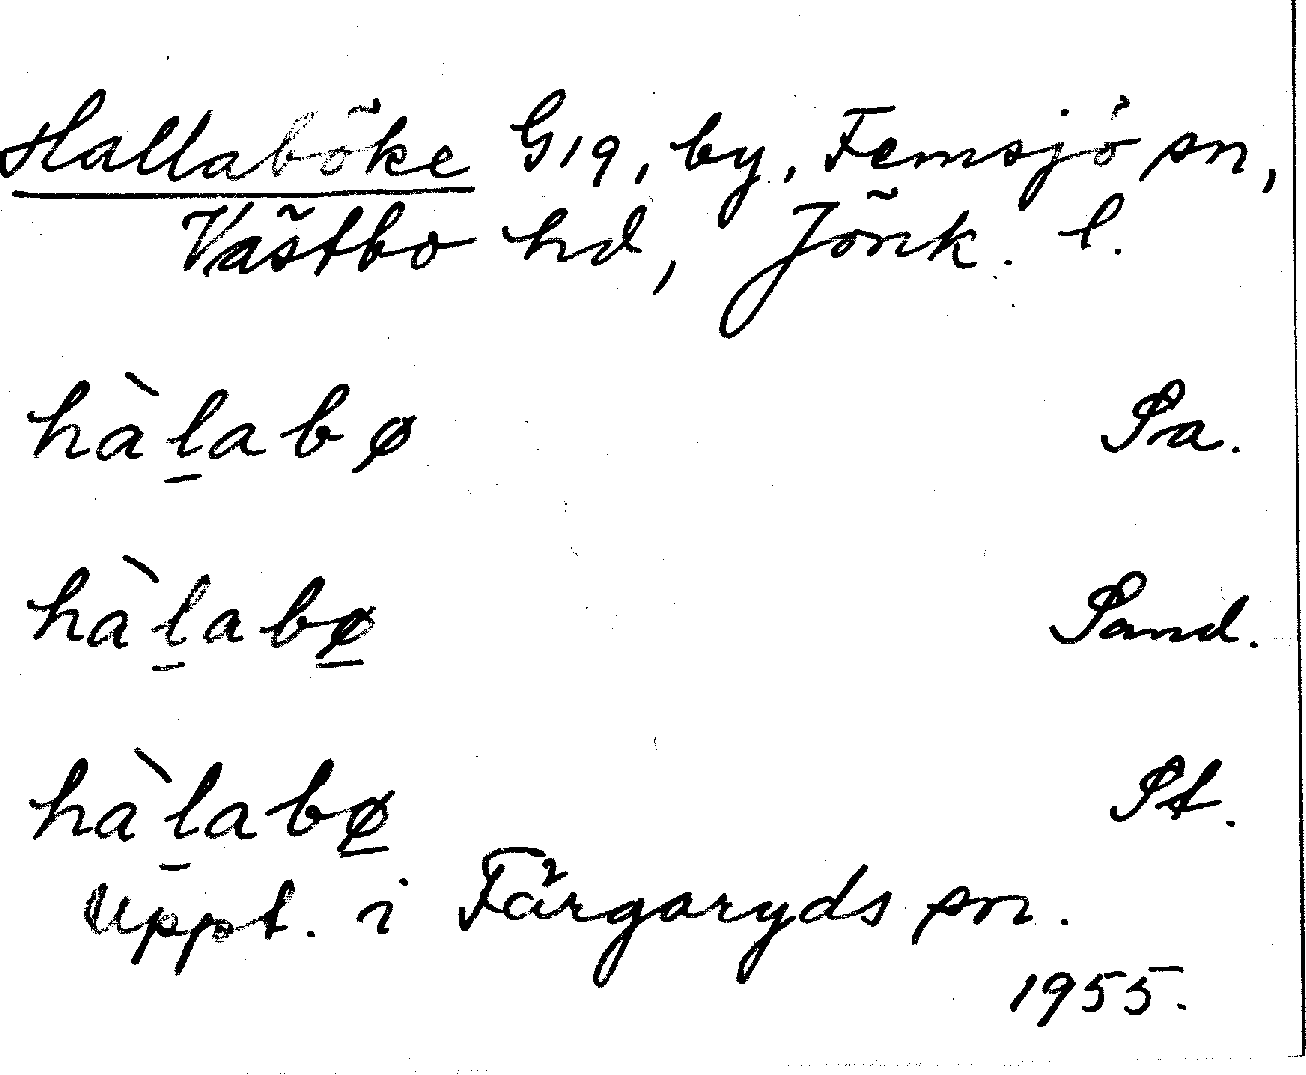 Hallaböke G19, by, Femsjö sn,
Västbo hd, Jönk. l.
hàl̠abø Sa.
hàl̠abø̠ Sand.
hàl̠abø̠ St.
Uppt. i Färgaryds sn.
1955.